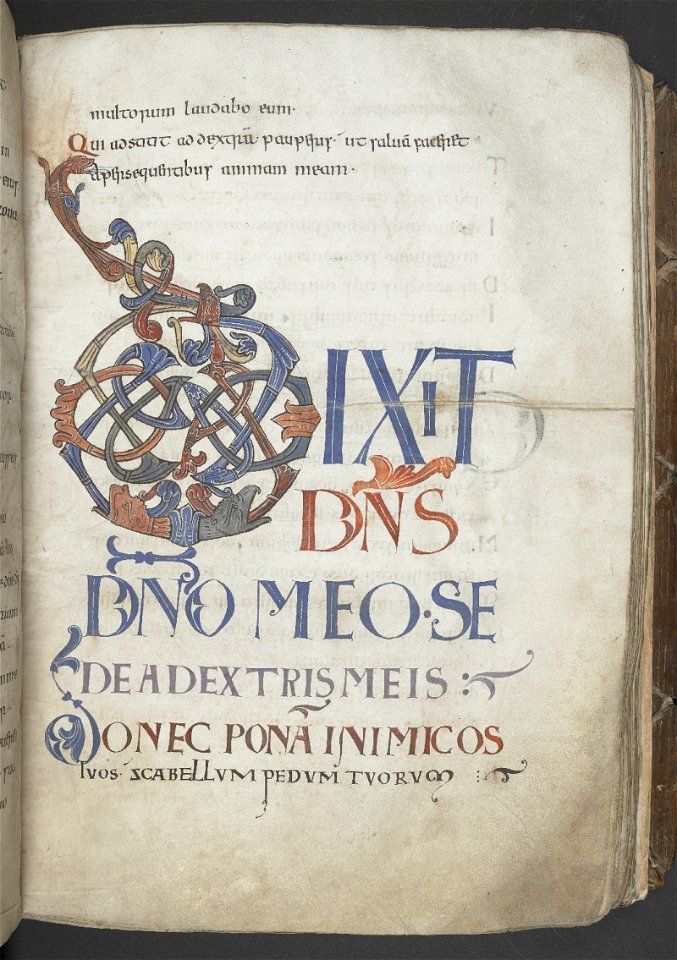 multorum laudabo eum·
Qui adstitit ad dextrā pauperis· ut saluā faceret
a persequentibus animam meam·
DIXIT
DN̄S
DN̄O MEO·SE
DE A DEXTRIS MEIS
DONEC PONĀ INIMICOS
tuos· SCABELLVM PEDVM TVORVM